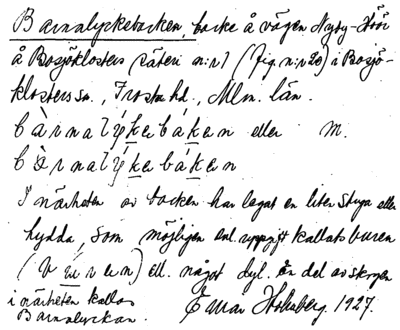 Barnalyckebacken, backe å vägen Nyby-Höör
å Bosjöklosters säteri n:r 1 (fig. n:r 20) i Bosjö-
klosters sn., Frosta hd., Mlm. län.
bàrnalỳkebáken eller m.
bàrnalỳkebáken
I närheten av backen har legat en liten stuga eller
hydda, som möjligen enl. uppgift kallats buren
(búren) ell. något dyl. En del av skogen
i närheten kallas Einar Holmberg. 1927.
Barnalyckan.